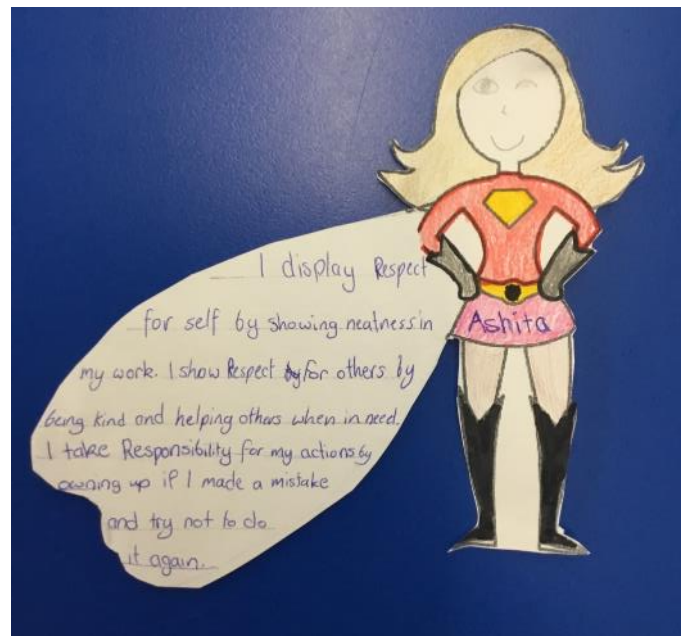 I display Respect
for self by showing neatness in
my work. I show Respect for others by
being kind and helping others when in need.
I take Responsibility for my actions by
owning up if I made a mistake
and try not to do
it again.
Ashita